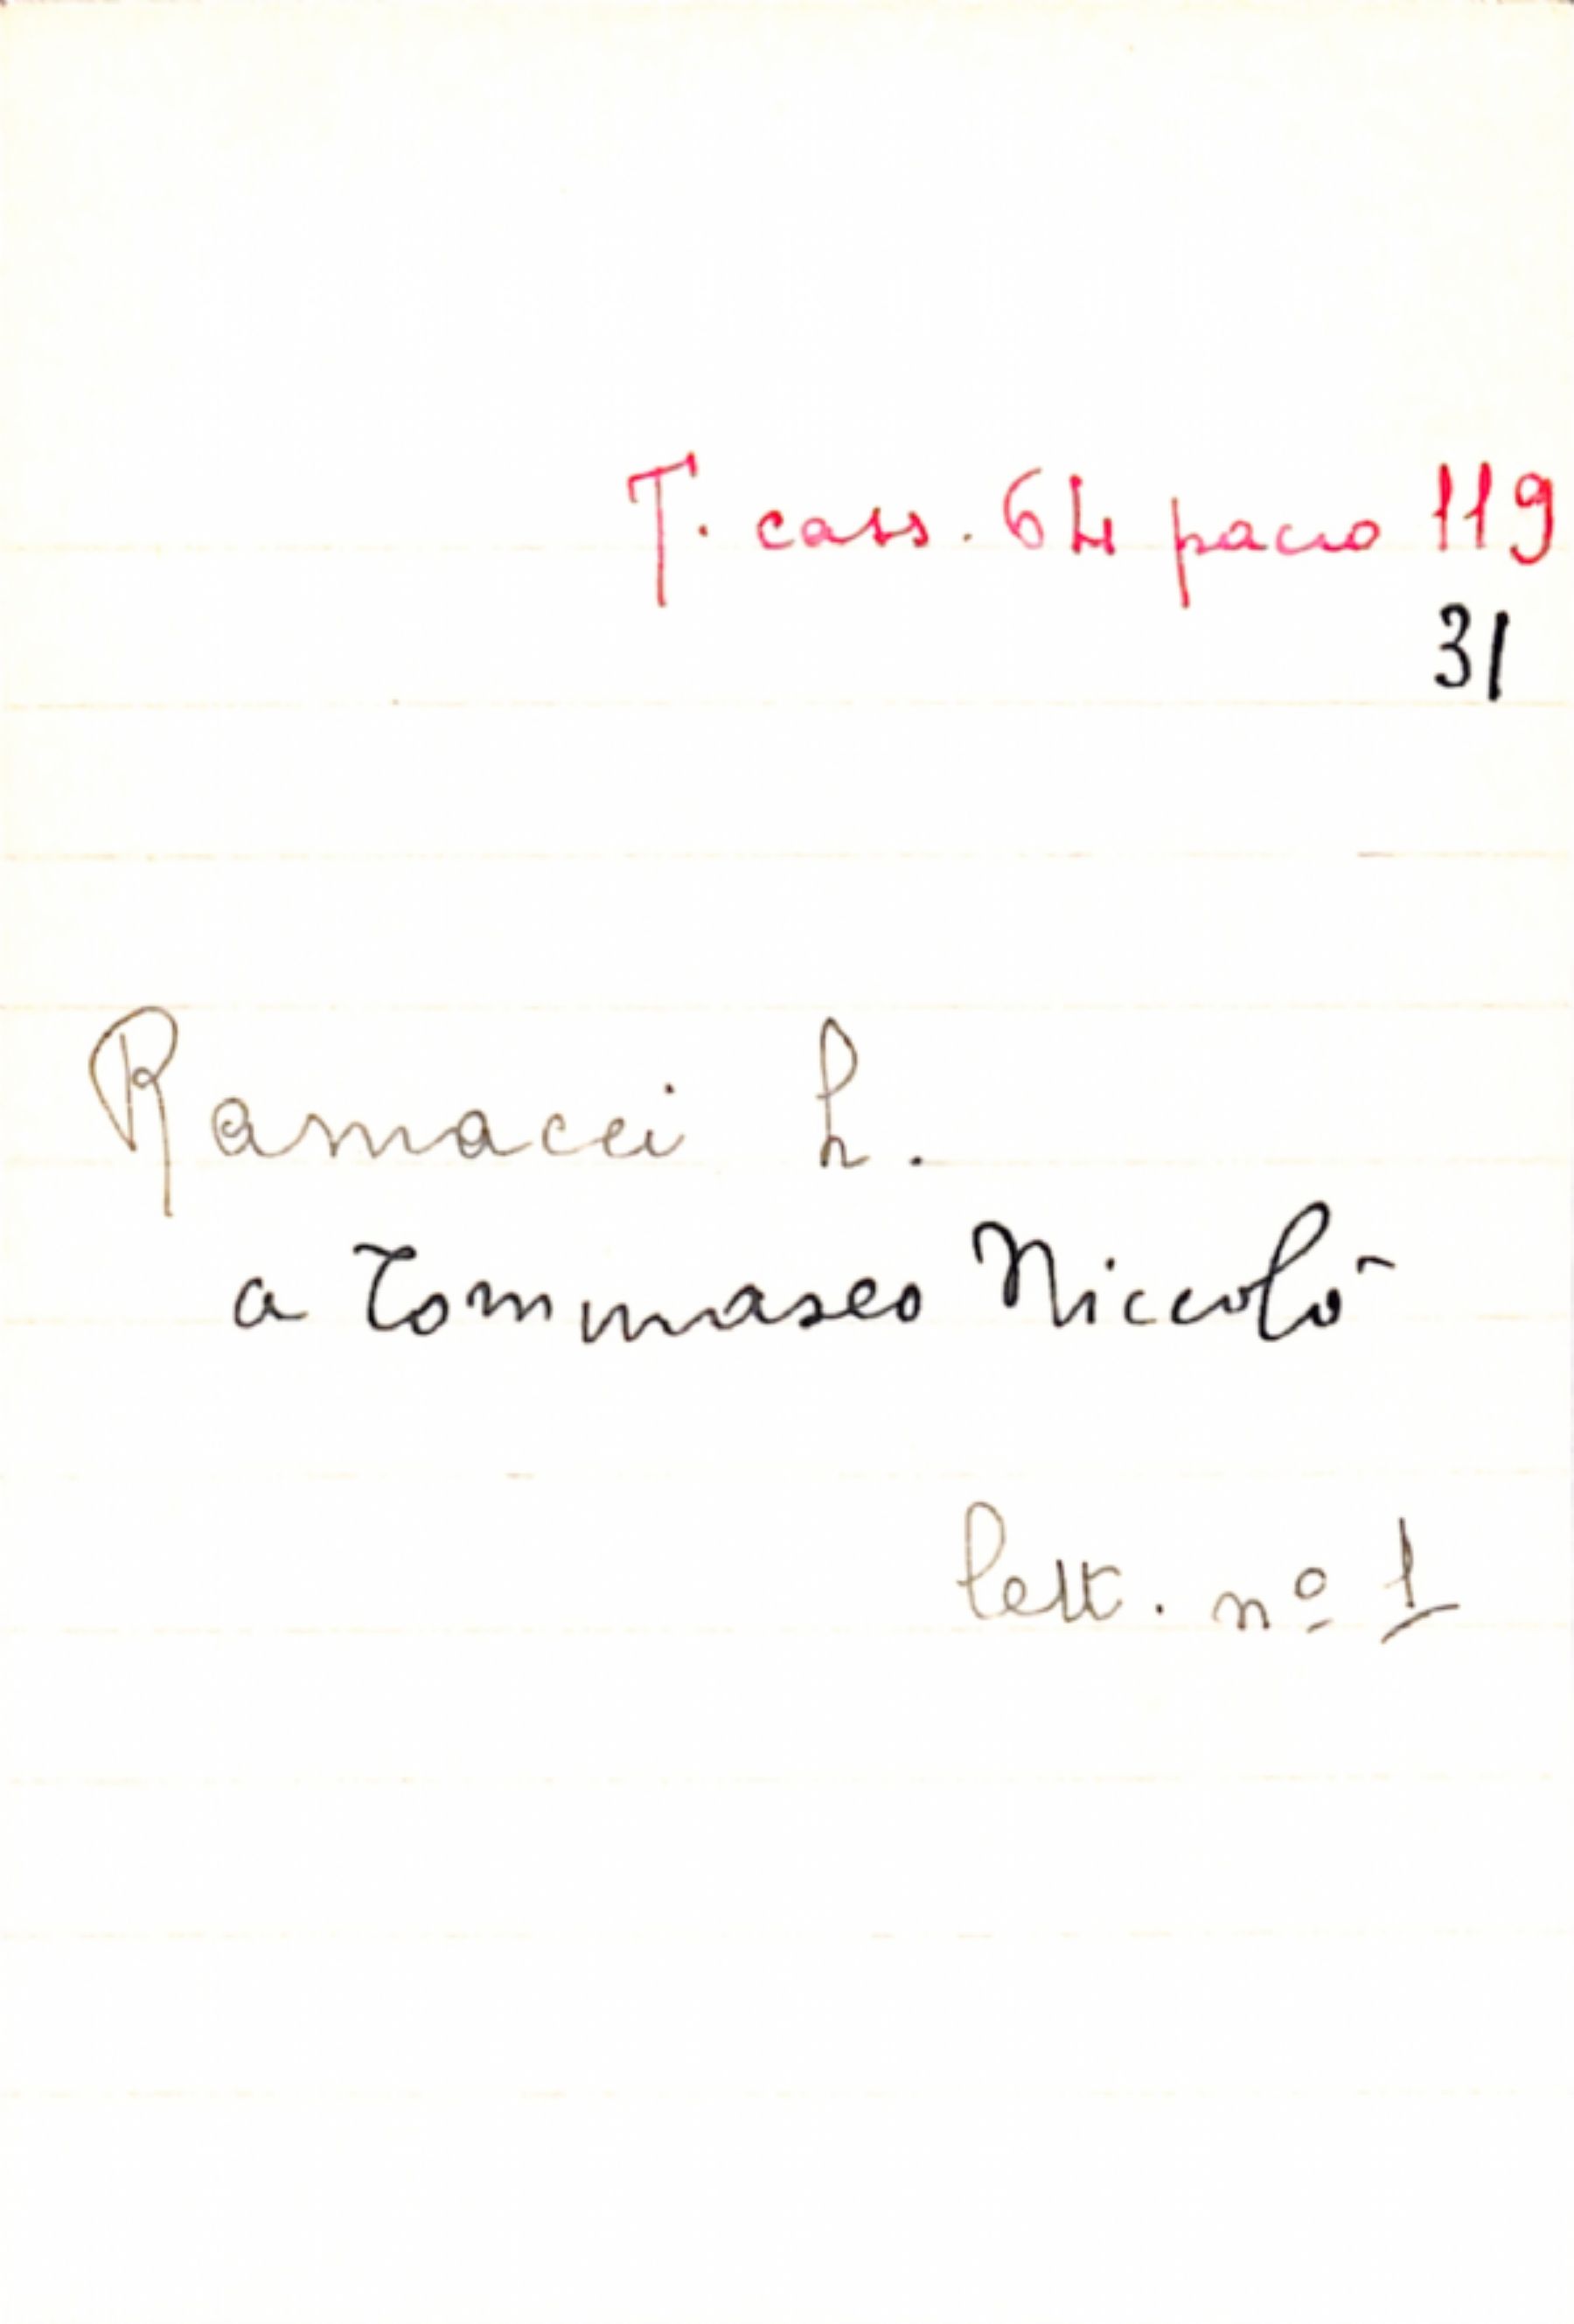 T. cass. 64 pacco 119
31
Ramacci L.
a Tommaseo Niccolò
lett. nº 1